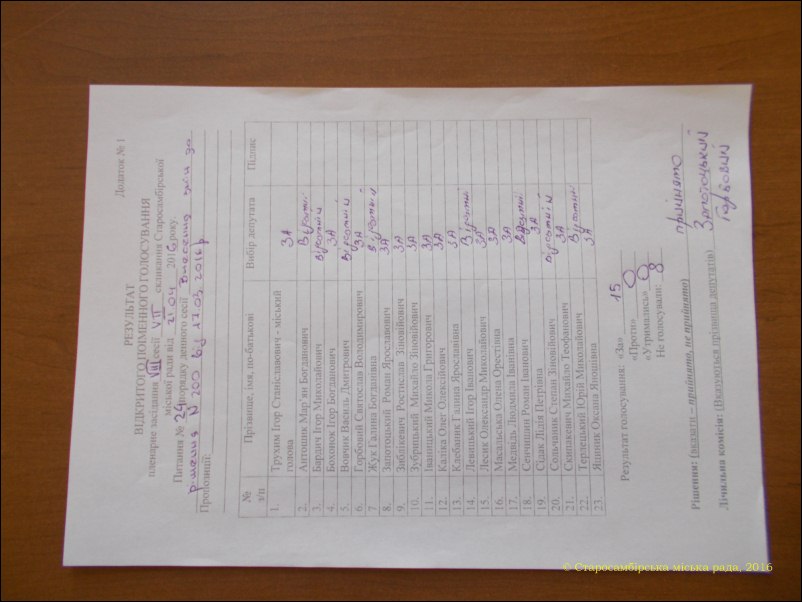 Додаток № 1
РЕЗУЛЬТАТ
ВІДКРИТОГО ПОІМЕННОГО ГОЛОСУВАННЯ
пленарне засідання VIII сесії VII скликання Старосамбірської
міської ради від 21.04 2016 року.
Питання № 24 порядку денного сесії Внесення змін до
рішення N 200 від 17.03.2016 р.
Пропозиції:
№ з/п Прізвище, імя, по-батькові Вибір депутата Підпис
1. Трухим Ігор Станіславович - міський голова ЗА
2. Антошик Мар'ян Богданович Відсутній
3. Бардич Ігор Миколайович Відсутній
4. Бохонок Ігор Богданович ЗА
5. Вовчик Василь Дмитрович Відсутній
6. Горбовий Святослав Володимирович ЗА
7 Жук Галина Богданівна Відсутній
8. Запотоцький Роман Ярославович ЗА
9. Зиблікевич Ростислав Зіновійович ЗА
10. Зубрицький Михайло Зіновійович ЗА
11. Іваницький Микола Григорович ЗА
12. Каліка Олег Олексійович ЗА
13. Клебаник Галина Ярославівна ЗА
14. Левицький Ігор Іванович Відсутній
15. Лесик Олександр Миколайович ЗА
16. Масальська Олена Орестівна ЗА
17. Медвідь Людмила Іванівна ЗА
18. Сенчишин Роман Іванович Відсутній
19. Сідак Лідія Петрівна ЗА
20. Сольчаник Степан Зіновійович Відсутній
21. Скипакевич Михайло Теофанович ЗА
22. Терлецький Юрій Миколайович Відсутній
23 Яциник Оксана Яношівна ЗА
Результат голосування: «За» 15
«Проти» 0
«Утримались» 0
Не голосували: 8
Рішення: (вказати – прийнято, не прийнято) прийнято
Лічильна комісія: (Вказуються прізвища депутатів) Запотоцький
Горбовий
© Старосамбірська міська рада, 2016